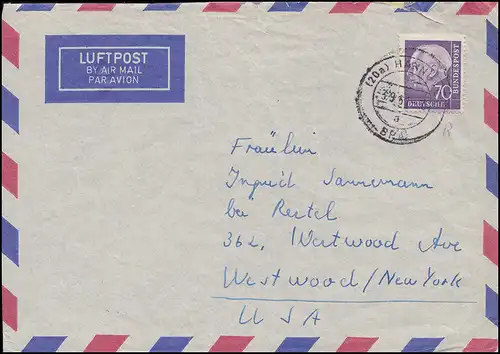 LUFTPOST
BY AIR MAIL
PAR AVION
(20a) HANN
a
BPA
DEUTSCHE
BUNDESPOST
70
Fräulein
Ingrid Sannemann
bei Reetel
362, Westwood Ave
Westwood/New York
USA